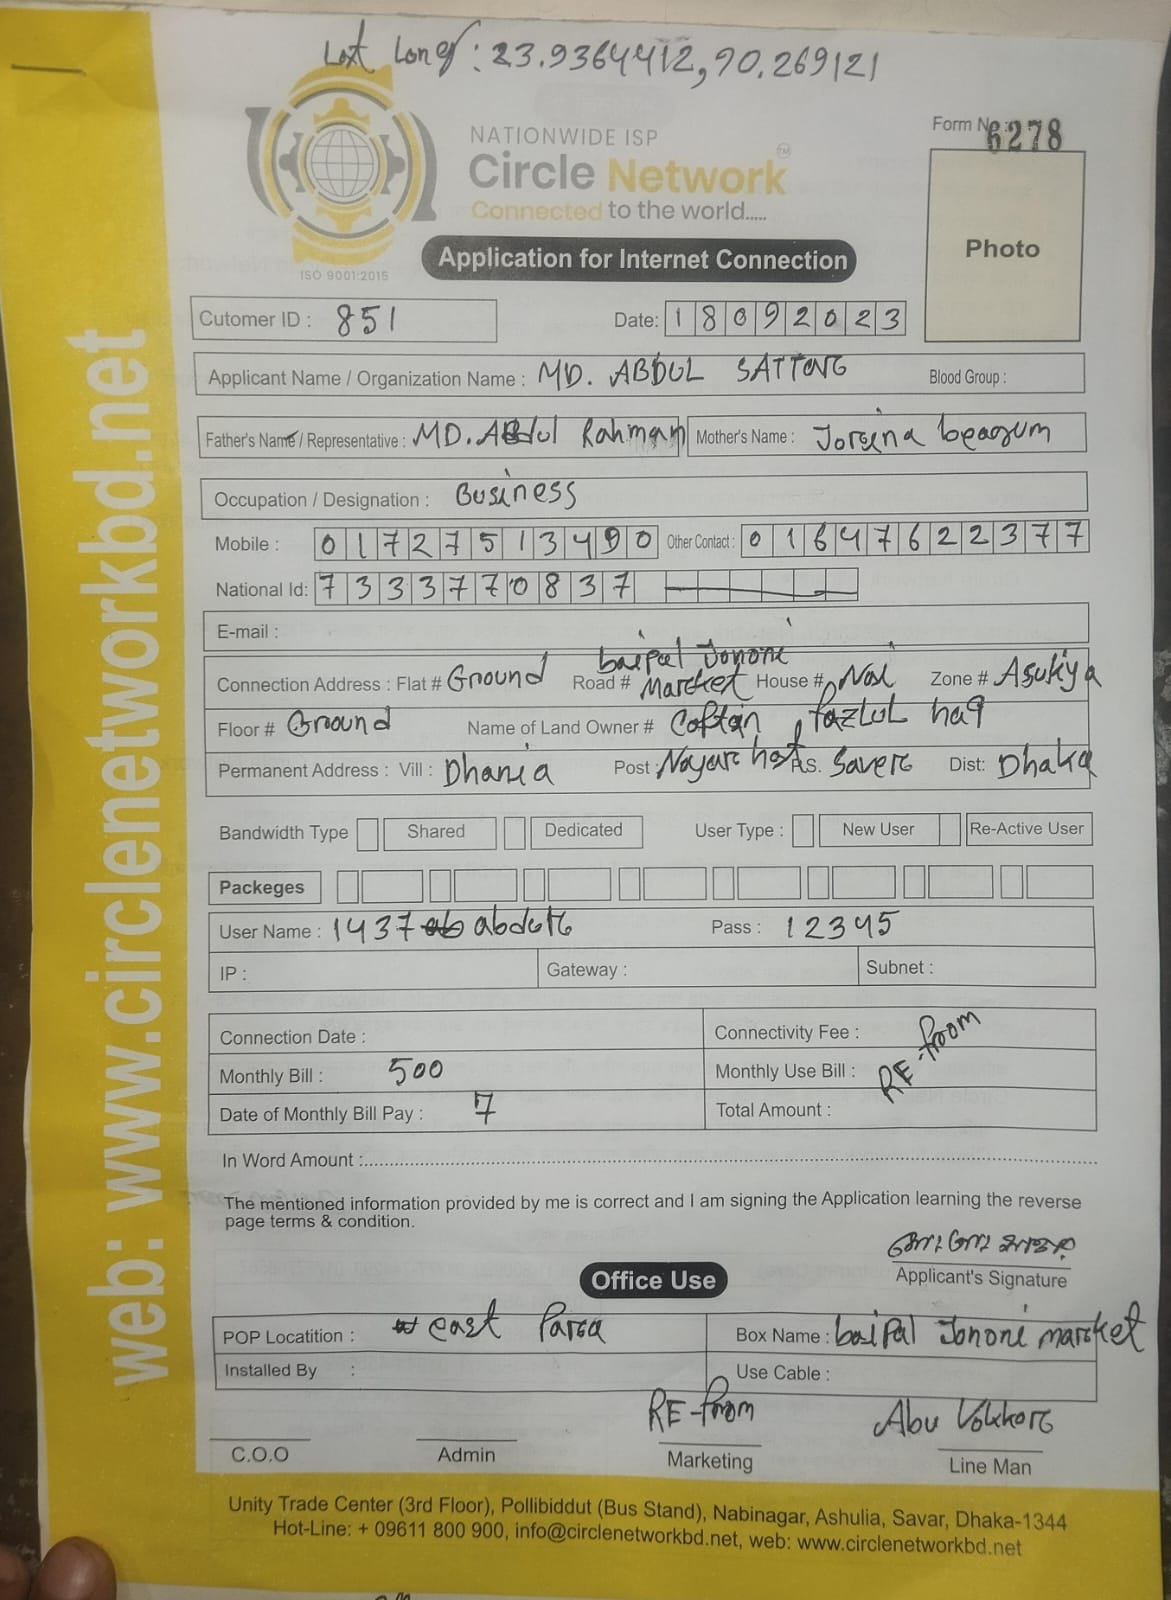 Lat Long: 23.9364412, 90.269121
NATIONWIDE ISP
Circle Network TM
Connected to the world.....
ISO 9001:2015
Form No: 6278
Photo
Application for Internet Connection
Cutomer ID : 851 Date: 18092023
Applicant Name / Organization Name : MD. ABDUL Blood Group :
Father's Name / Representative : MD. Abdul Rahman Mother's Name : Joreina beagum
Occupation / Designation : Business
Mobile : 01727513490 Other Contact : 01647622377
National Id: 7333770837
E-mail :
Connection Address : Flat # Ground Road # baipal Jononi Market House # Zone #
Floor # Ground Name of Land Owner # Coftain fazlul haq
Permanent Address : Vill : Dhania Post : Nayarhat P.s. Saver Dist: Dhaka
Bandwidth Type Shared Dedicated User Type : New User Re-Active User
Packeges
User Name : 1437 abdur Pass : 12345
IP : Gateway : Subnet :
Connection Date : Connectivity Fee :
Monthly Bill : 500 Monthly Use Bill : RE-from
Date of Monthly Bill Pay : 7 Total Amount :
In Word Amount :
The mentioned information provided by me is correct and I am signing the Application learning the reverse
page terms & condition.
Applicant's Signature
Office Use
POP Locatition : east Parca Box Name : baipal Jononi market
Installed By : Use Cable :
RE-from Abu
C.O.O Admin Marketing Line Man
Unity Trade Center (3rd Floor), Pollibiddut (Bus Stand), Nabinagar, Ashulia, Savar, Dhaka-1344
Hot-Line: + 09611 800 900, info@circlenetworkbd.net, web: www.circlenetworkbd.net
web: www.circlenetworkbd.net